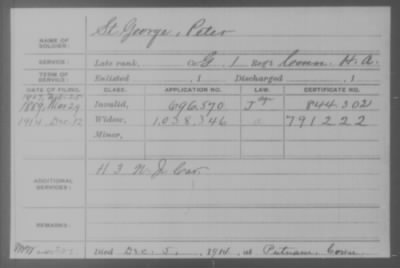 NAME OF SOLDIER: St. George, Peter
SERVICE: Late rank, Co. G, 1 Reg't Conn. H.A.
TERM OF SERVICE: Enlisted , 1 Discharged , 1
DATE OF FILING. CLASS. APPLICATION NO. LAW. CERTIFICATE NO.
1889, Mar 29 Invalid, 696.570 J 844.302
1914 Dec. 12 Widow, 1.038.346 791222
Minor,
ADDITIONAL SERVICES: H 3 N.J. Cav.
REMARKS:
Died Dec. 5, 1914, at Putnam, Conn.